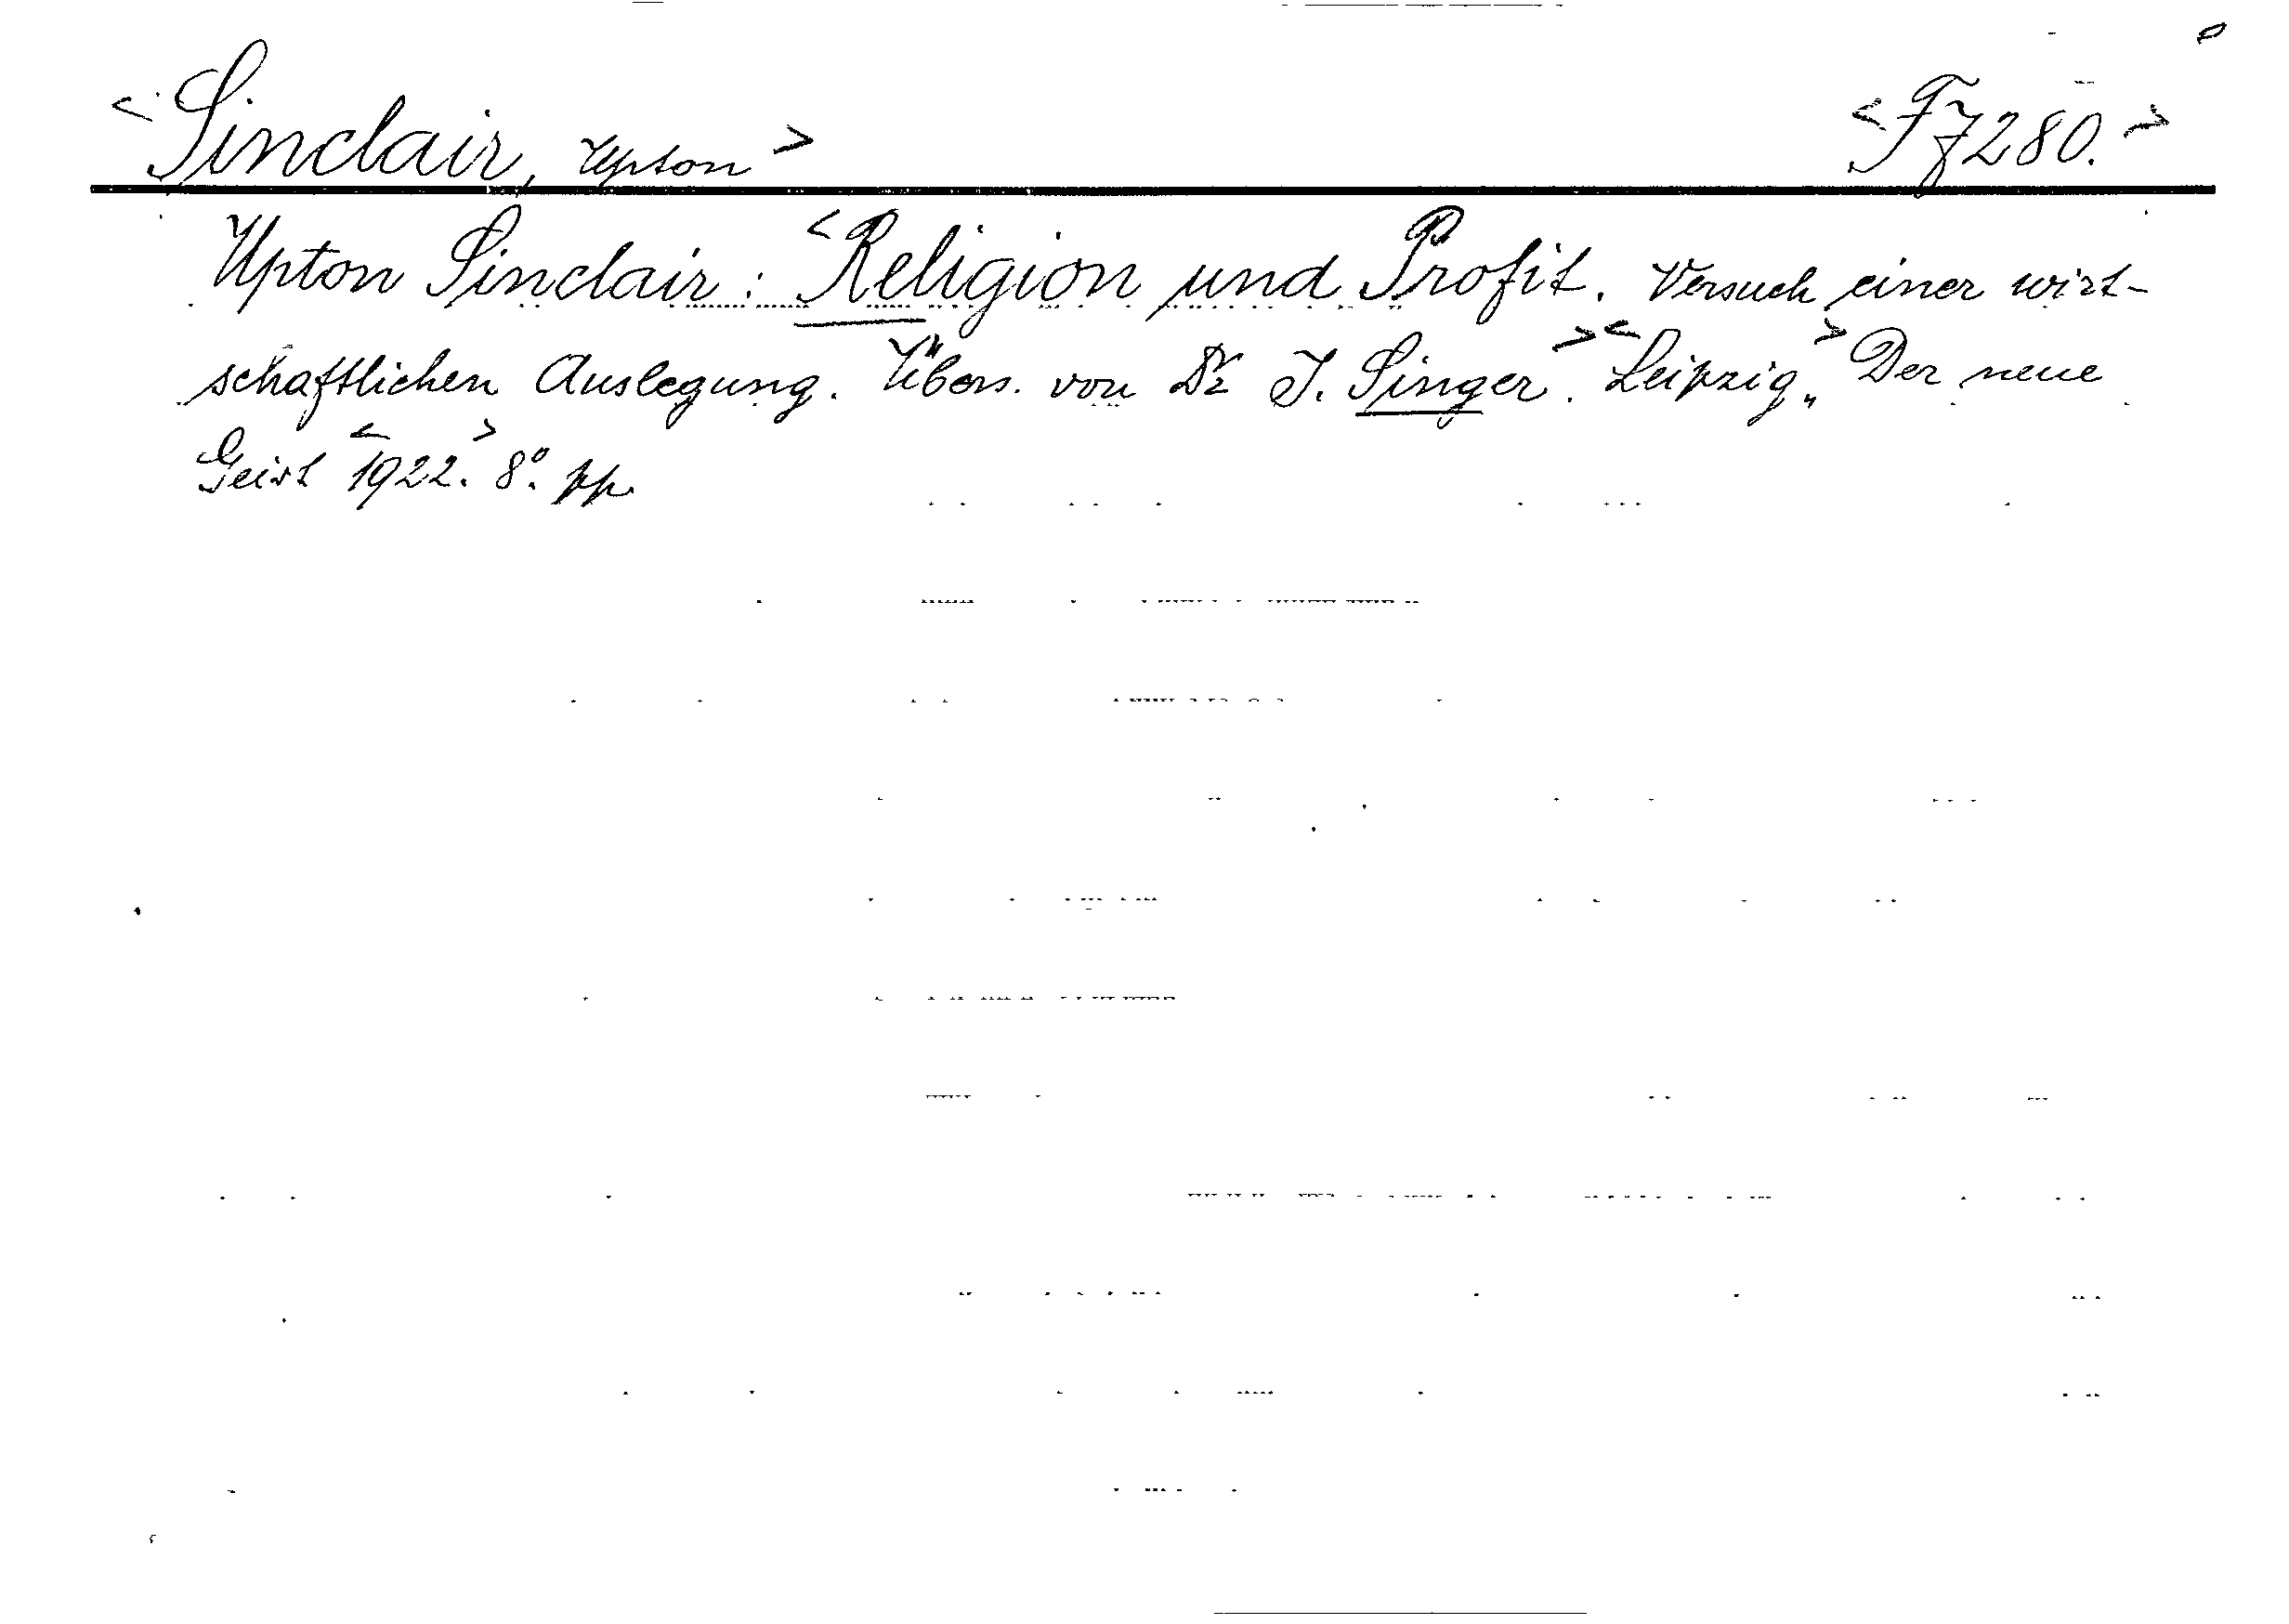 <Sinclair, Upton> <F7280.>
Upton Sinclair: <Religion und Profit. Versuch einer wirt-
schaftlichen Auslegung. Übers. von Dr J. Singer>. <Leipzig,,> Der neue
Geist <1922.> 8°. pp.